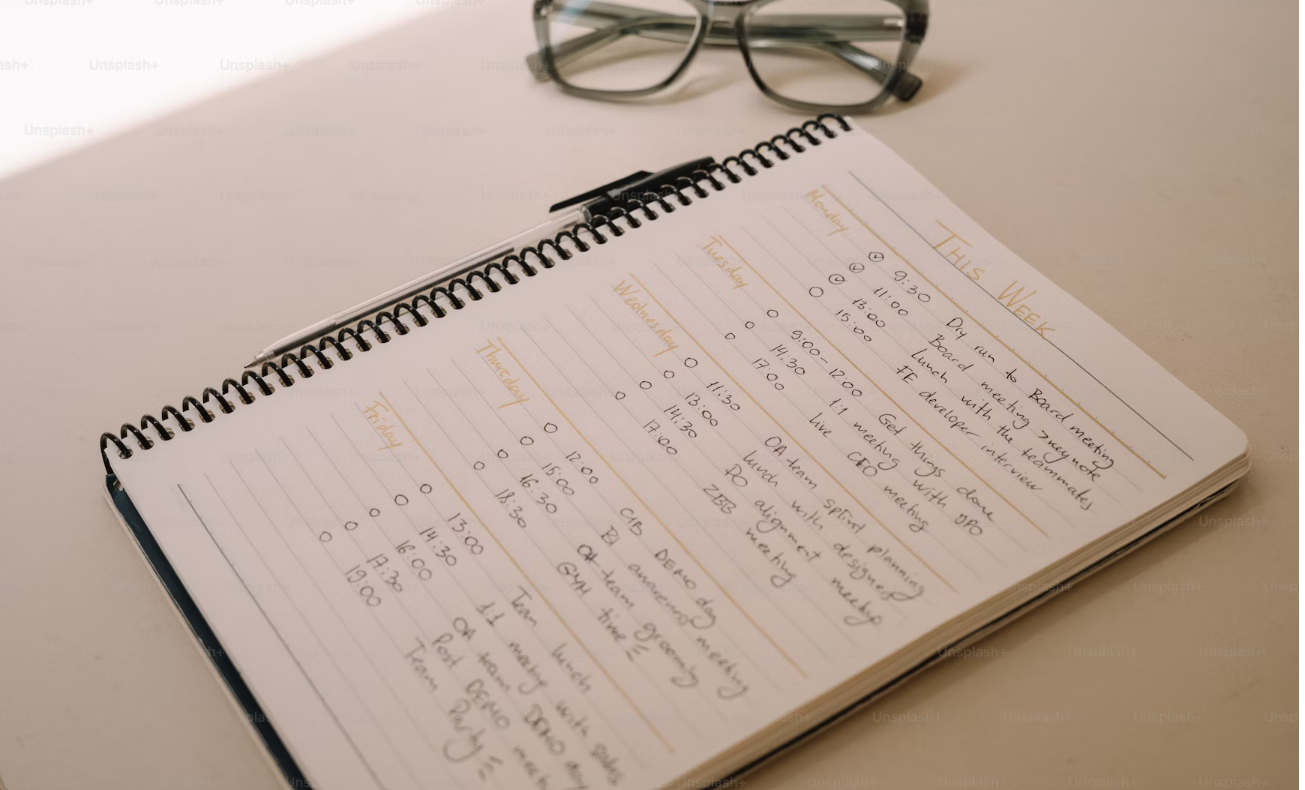 THIS WEEK
Monday
9:30 Dry run to Board meeting
11:00 Board meeting > keynote
13:00 Lunch with the teammates
15:00 FE developer interview
Tuesday
9:00-12:00 Get things done
14:30 1:1 meeting with JPO
17:00 live CEO meeting
Wednesday
11:30 OA team sprint planning
13:00 lunch with designers
14:30 PO alignment meetup
17:00 ZBB meeting
Thursday
12:00 DEMO day
15:00 BI meeting
16:30 OA team grooming
18:30 GYM time
Friday
13:00 Team lunch
14:30 1:1 meeting with sales
16:00 OA team DEMO day
17:30 Post DEMO
19:00 Team Party
Unsplash+